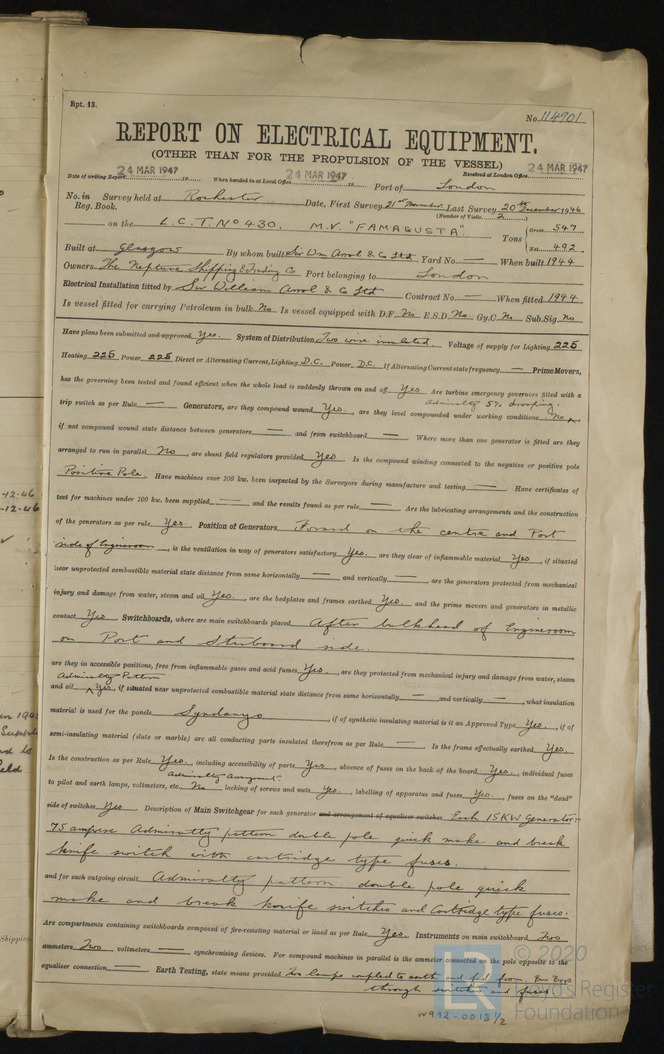 Rpt. 13.
No. 114901
REPORT ON ELECTRICAL EQUIPMENT.
(OTHER THAN FOR THE PROPULSION OF THE VESSEL)
24 MAR 1947 24 MAR 1947 24 MAR 1947
Date of writing Report 19 When handed in at Local Office 19 Port of London Received at London Office
No. in Reg. Book. Survey held at Rochester Date, First Survey 21st November Last Survey 20th December 1946
(Number of Visits 2)
on the L.C.T. No 430. M.V. "FAMAGUSTA". Tons Gross 547 Net 492
Built at Glasgow By whom built Sir Wm Arrol & Co Ltd Yard No. — When built 1944
Owners The Neptune Shipping & Trading Co Port belonging to London
Electrical Installation fitted by Sir William Arrol & Co Ltd Contract No. — When fitted 1944
Is vessel fitted for carrying Petroleum in bulk No Is vessel equipped with D.F. No E.S.D. No Gy.C. No Sub.Sig. No
Have plans been submitted and approved Yes. System of Distribution Two wire insulated. Voltage of supply for Lighting 225
Heating 225 Power 225 Direct or Alternating Current, Lighting D.C. Power D.C. If Alternating Current state frequency — Prime Movers,
has the governing been tested and found efficient when the whole load is suddenly thrown on and off Yes Are turbine emergency governors fitted with a
Admiralty 5% drooping.
trip switch as per Rule — Generators, are they compound wound Yes, are they level compounded under working conditions No
if not compound wound state distance between generators — and from switchboard — Where more than one generator is fitted are they
arranged to run in parallel No, are shunt field regulators provided Yes Is the compound winding connected to the negative or positive pole
Positive Pole. Have machines over 100 kw. been inspected by the Surveyors during manufacture and testing — Have certificates of
test for machines under 100 kw. been supplied — and the results found as per rule — Are the lubricating arrangements and the construction
of the generators as per rule Yes. Position of Generators Forward on the centre and Port
side of Engineroom, is the ventilation in way of generators satisfactory Yes. are they clear of inflammable material Yes, if situated
near unprotected combustible material state distance from same horizontally — and vertically —, are the generators protected from mechanical
injury and damage from water, steam and oil Yes. are the bedplates and frames earthed Yes and the prime movers and generators in metallic
contact Yes. Switchboards, where are main switchboards placed After bulkhead of Engineroom
on Port and Starboard side.
are they in accessible positions, free from inflammable gases and acid fumes Yes, are they protected from mechanical injury and damage from water, steam
Admiralty Pattern
and oil Yes, if situated near unprotected combustible material state distance from same horizontally — and vertically —, what insulation
material is used for the panels Syndanyo, if of synthetic insulating material is it an Approved Type Yes, if of
semi-insulating material (slate or marble) are all conducting parts insulated therefrom as per Rule — Is the frame effectually earthed Yes.
Is the construction as per Rule Yes, including accessibility of parts Yes, absence of fuses on the back of the board Yes., individual fuses
Admiralty arrangement
to pilot and earth lamps, voltmeters, etc., No locking of screws and nuts Yes, labelling of apparatus and fuses Yes, fuses on the "dead"
side of switches Yes Description of Main Switchgear for each generator and arrangement of equaliser switches Each 15KW Generator:-
75 ampere Admiralty pattern double pole quick make and break
knife switch with cartridge type fuses.
and for each outgoing circuit Admiralty pattern double pole quick
make and break knife switches and cartridge type fuses.
Are compartments containing switchboards composed of fire-resisting material or lined as per Rule Yes. Instruments on main switchboard Two
ammeters Two voltmeters — synchronising devices. For compound machines in parallel is the ammeter connected on the pole opposite to the
equaliser connection — Earth Testing, state means provided Two lamps coupled to earth and fed from Bus Bars
through switches and fuses
W992-0013 1/2
© 2020
Lloyd's Register
Foundation
LR
-12-46
-12-46
Shipping